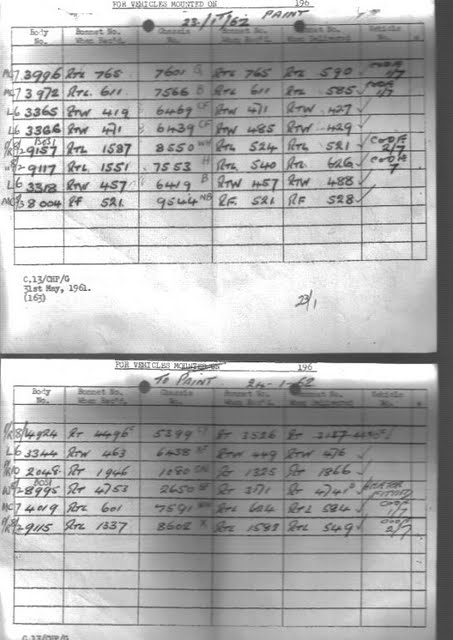 FOR VEHICLES MOUNTED ON 196
23/1/62 PAINT
Body No. Bonnet No. When Rec'd. Chassis No. Bonnet No. When Mounted Bonnet No. When Delivered Vehicle No.
MC7 3996 RTL 765 7601 RTL 765 RTL 590 ✓ COOK 1/7
MC7 3972 RTL 611 7566 B RTL 611 RTL 585 ✓ 1/7
L6 3365 RTW 419 6469 CF RTW 471 RTW 427 ✓
L6 3366 RTW 471 6439 CF RTW 485 RTW 429 ✓
9157 RTL 1587 8550 WH RTL 524 RTL 521 ✓ COOK 2/7
9117 RTL 1551 7553 H RTL 540 RTL 626 ✓
L6 3318 RTW 457 6419 B RTW 457 RTW 488 ✓
8004 RF 521 9544 NB RF 521 RF 528 ✓
C.13/CHP/G
31st May, 1961.
(163)
23/1
FOR VEHICLES MOUNTED ON 196
TO PAINT 24-1-62
Body No. Bonnet No. When Rec'd. Chassis No. Bonnet No. Bonnet No. When Delivered Vehicle No.
4924 RT 4496 5399 RT 3526 RT 3137
L6 3344 RTW 463 6438 RTW 449 RTW 476 ✓
2048 RT 1946 1080 RT 1325 RT 1866 ✓
8995 RT 4753 2650 RT 3171 RT 4741 ✓ HEATER FITTED
MC7 4019 RTL 601 7591 RTL 624 RTL 584 ✓ 1/7
9115 RTL 1337 8602 X RTL 1593 RTL 549 ✓ 2/7
C.13/CHP/G